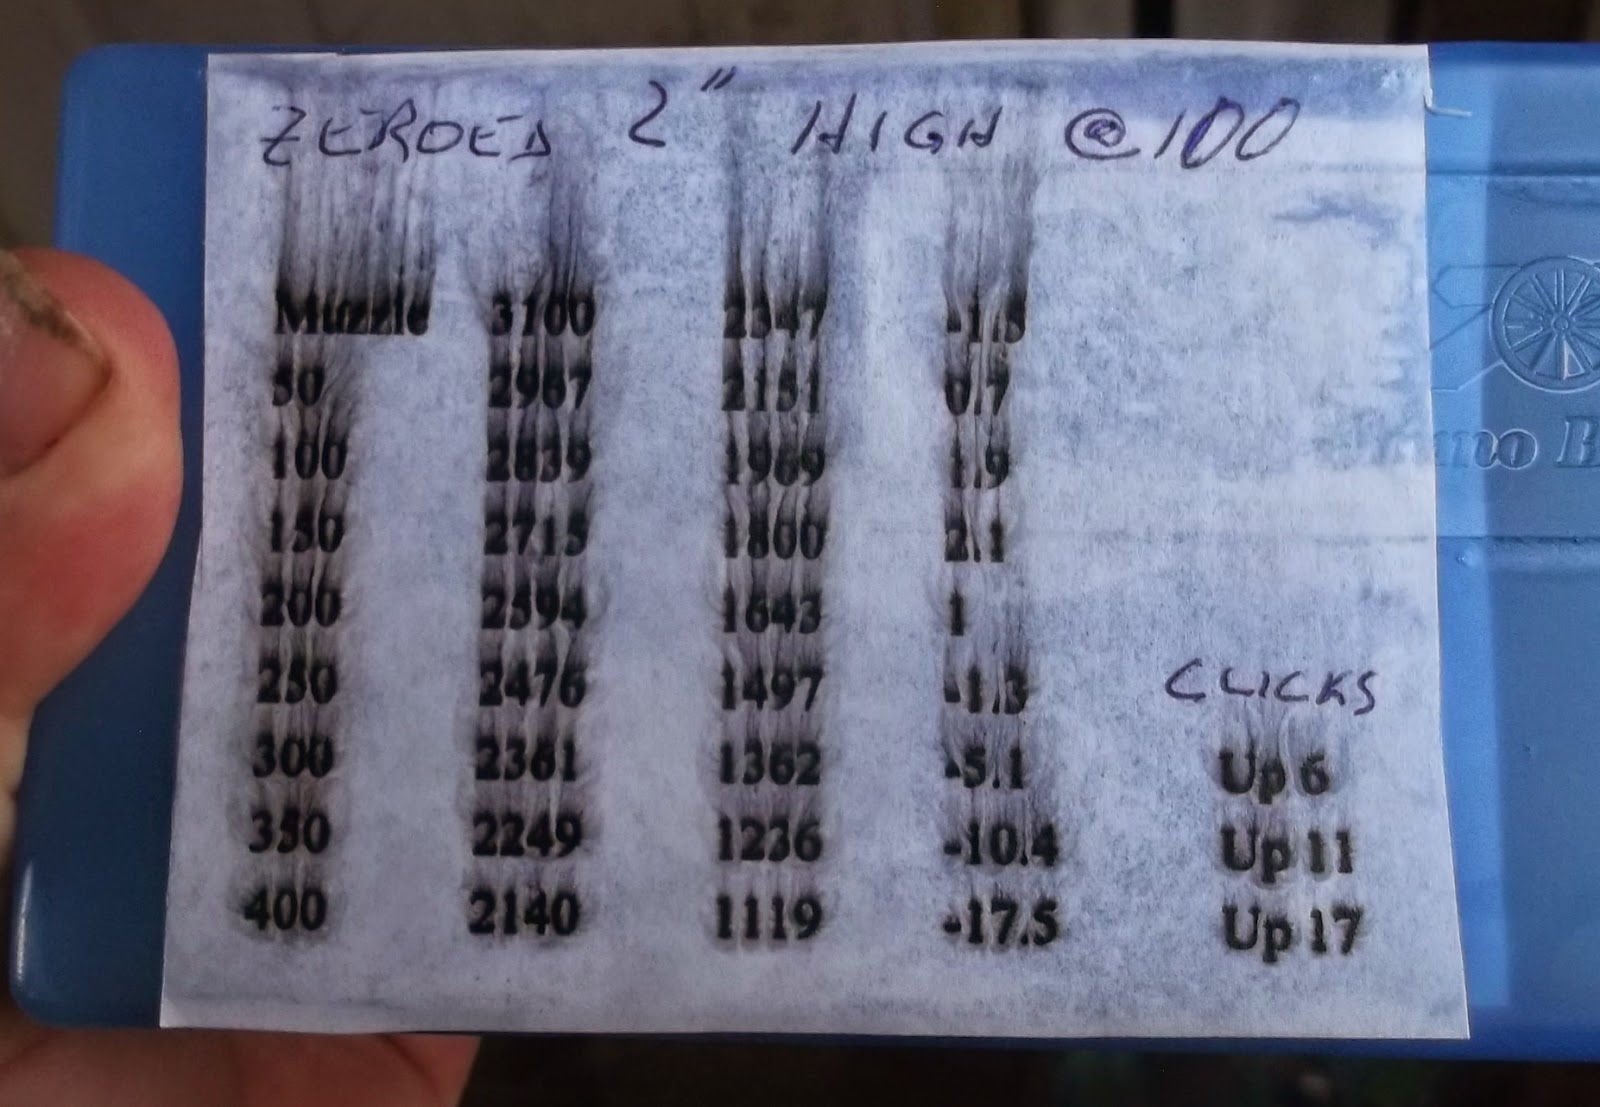 ZEROED 2" HIGH @ 100
Muzzle 3100 2347 -1.5
50 2967 2151 0.7
100 2839 1969 1.9
150 2715 1800 2.1
200 2594 1643 1
250 2476 1497 -1.3 CLICKS
300 2361 1362 -5.1 Up 6
350 2249 1236 -10.4 Up 11
400 2140 1119 -17.5 Up 17